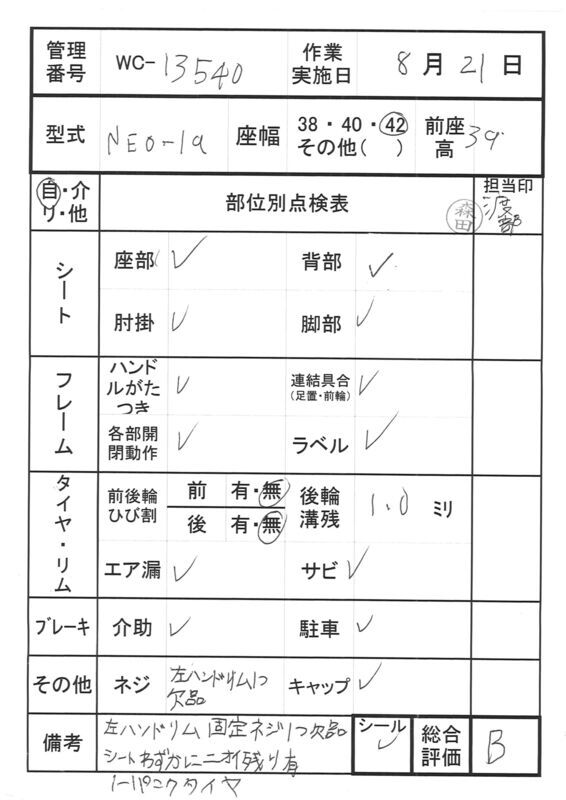 管理番号 WC-13540 作業実施日 8月21日
型式 NEO-1a 座幅 38・40・42 その他( ) 前座高 39
自・介 リ・他 部位別点検表 森田 担当印 渡部
シート 座部 ✓ 背部 ✓
肘掛 ✓ 脚部 ✓
フレーム ハンドルがたつき ✓ 連結具合(足置・前輪) ✓
各部開閉動作 ✓ ラベル ✓
タイヤ・リム 前後輪ひび割 前 有・無 後輪溝残 1.0 ミリ
後 有・無
エア漏 ✓ サビ ✓
ブレーキ 介助 ✓ 駐車 ✓
その他 ネジ 左ハンドリム1つ欠品 キャップ ✓
備考 左ハンドリム固定ネジ1つ欠品 シール ✓ 総合評価 B
シートわずかにニオイ残り有
ノーパンクタイヤ